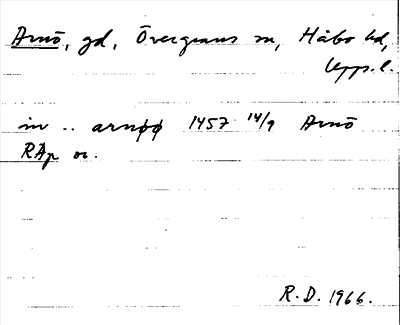 Arnö, gd, Övergrans sn, Håbo hd,
Upps. l.
in .. arnøø 1457 14/9 Arnö
RAp or.
R.D. 1966.